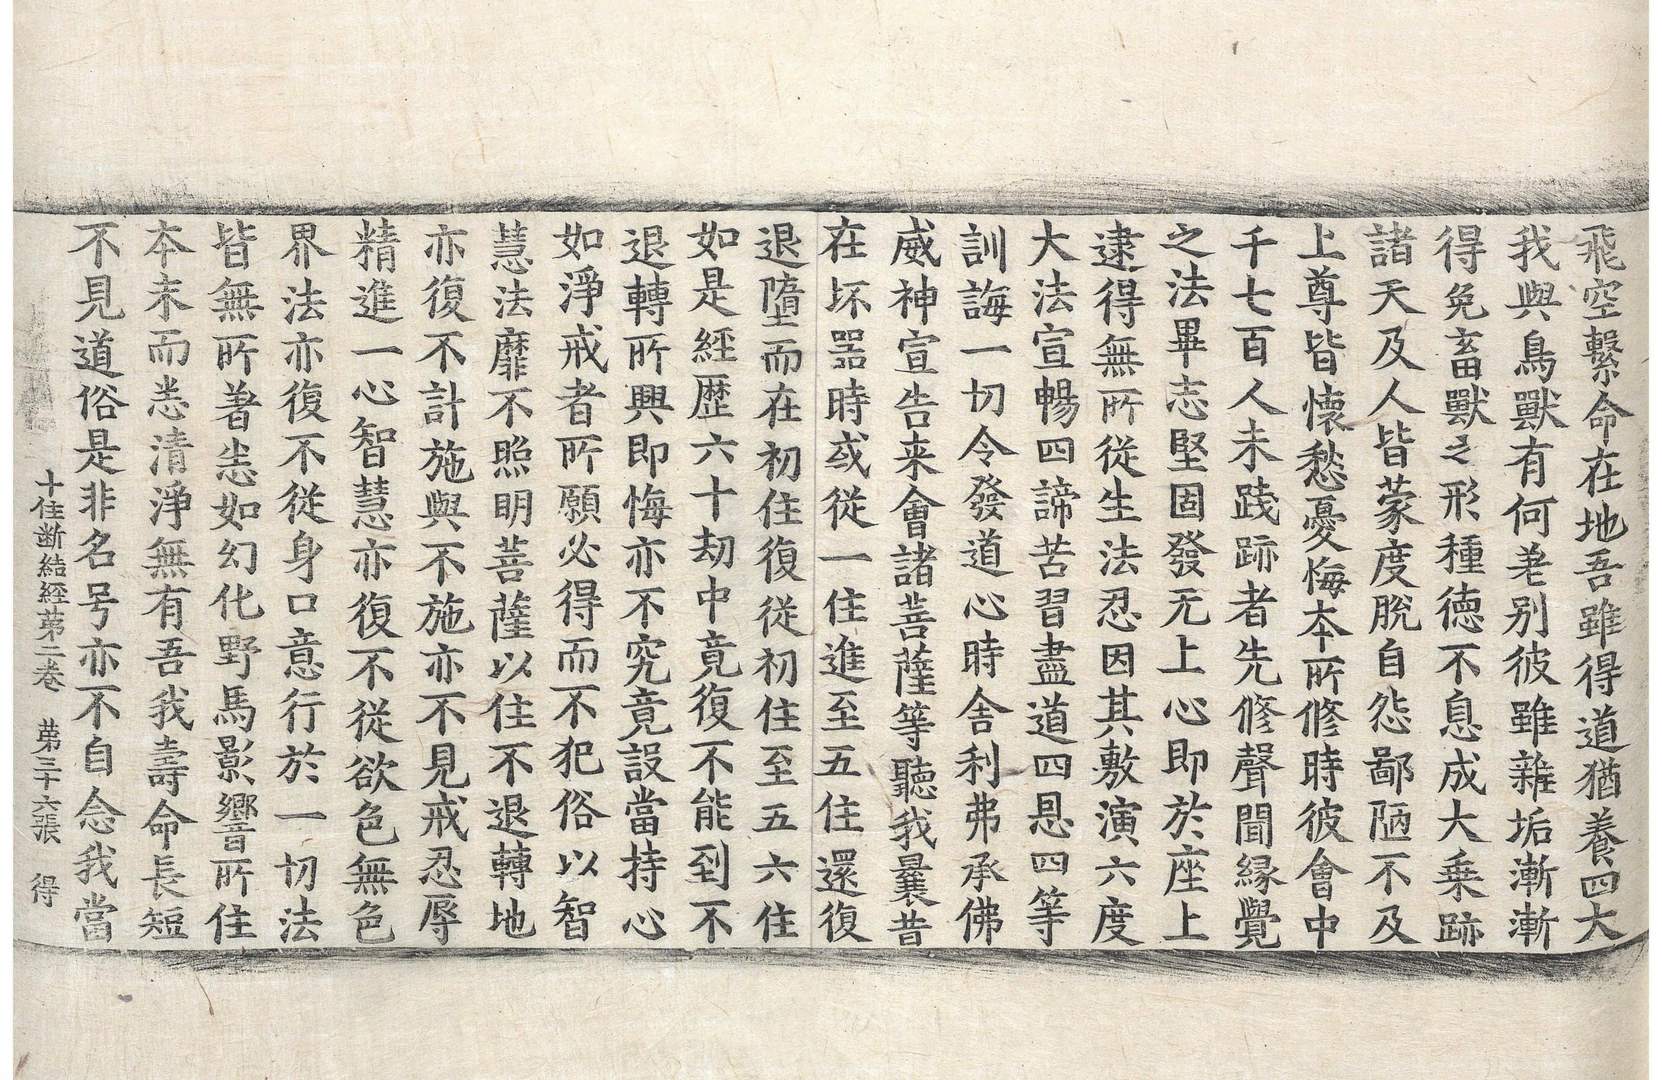 飛空繫命在地吾雖得道猶養四大
我與鳥獸有何差别彼雖雜垢漸漸
得免畜獸之形種德不息成大乗跡
諸天及人皆蒙度脫自怨鄙陋不及
上尊皆懐愁憂悔本所修時彼會中
千七百人未踐跡者先修聲聞縁覺
之法畢志堅固發无上心即於座上
逮得無所從生法忍因其敷演六度
大法宣暢四諦苦習盡道四恩四等
訓誨一切令發道心時舍利弗承佛
威神宣告来會諸菩薩等聽我曩昔
在坏器時或從一住進至五住還復
退墮而在初住復從初住至五六住
如是經歷六十劫中竟復不能到不
退轉所興即悔亦不究竟設當持心
如淨戒者所願必得而不犯俗以智
慧法靡不照明菩薩以住不退轉地
亦復不計施與不施亦不見戒忍辱
精進一心智慧亦復不從欲色無色
界法亦復不從身口意行於一切法
皆無所著悉如幻化野馬影響所住
本末而悉清淨無有吾我壽命長短
不見道俗是非名号亦不自念我當
十住斷結經苐二卷　苐三十六張　得